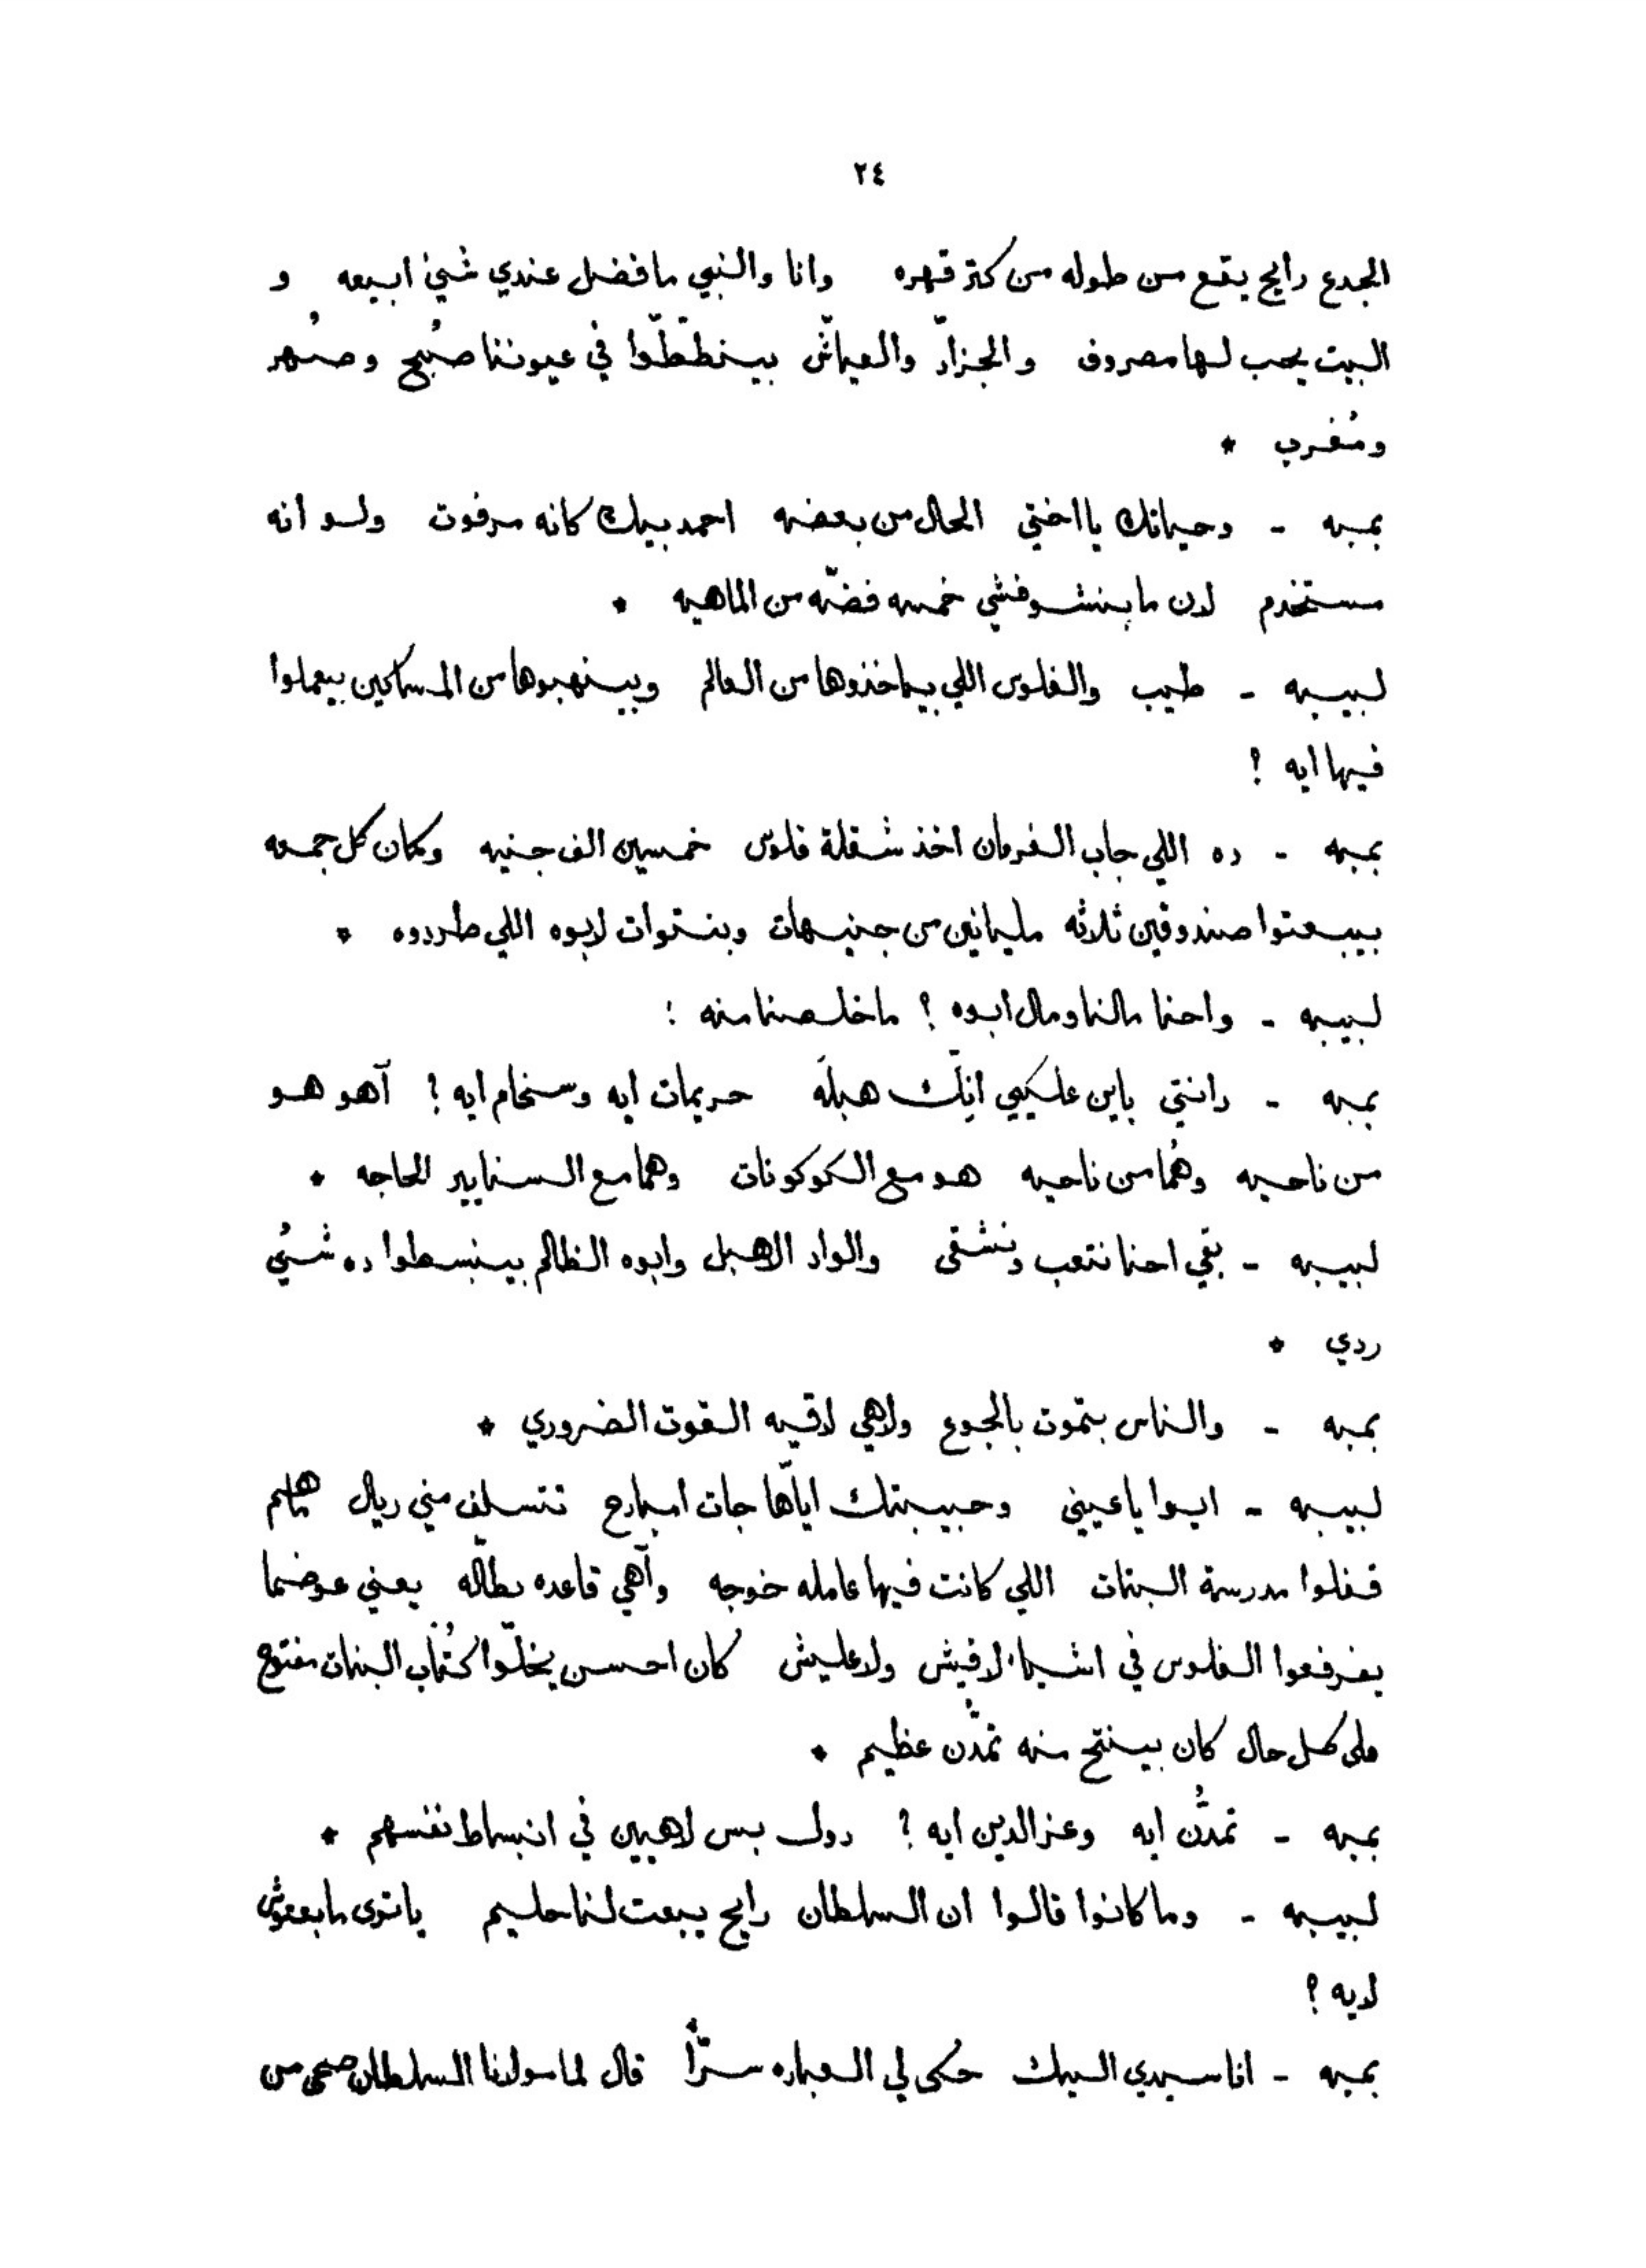 ٢٤
الجدع رايح يقع من طوله من كتر قهره وانا والنبي ما فضل عندي شيئ ابيعه و
البيت يحب لها مصروف والجزّار والعيّاش بينططّوا في عيوننا صُبح وضُهر
ومُغرب *
بمبه - وحياتك يا اختي الحال من بعضه احمد بيك كانه مرفوت ولو انه
مستخدم لان ما بنشوفشي خمسه فضّه من الماهيه *
لبيبه - طيب والفلوس اللي بياخذوها من العالم وبينهبوها من المساكين بيعملوا
فيها ايه ؟
بمبه - ده اللي جاب الفرمان اخذ شقلة فلوس خمسين الف جنيه وكمان كل جمعه
بيبعتوا صندوقين ثلاثه مليانين من جنيهات وبنتوات لابوه اللي طردوه *
لبيبه - واحنا مالنا ومال ابوه ؟ ما خلصنا منه :
بمبه - دانتي باين عليكي انِّك هبله حريمات ايه وسخام ايه ؟ آهو هو
من ناحيه وهُما من ناحيه هو مع الكوكونات وهما مع السنايير الحاجه *
لبيبه - بقي احنا نتعب ونشقى والواد الاهبل وابوه الظالم بينبسطوا ده شيئ
ردي *
بمبه - والناس بتموت بالجوع ولاهي لاقيه القوت الضروري *
لبيبه - ايوا يا عيني وحبيبتك ايّاها جات امبارح تتسلف مني ريال همّاهم
قفلوا مدرسة البنات اللي كانت فيها عامله خوجه وآهي قاعده بطّاله يعني عوضما
يفرفعوا الفلوس في اشيا لافيش ولاعليش كان احسن يخلّوا كُتّاب البنات مفتوح
على كل حال كان بينتج منه تمدّن عظيم *
بمبه - تمدُّن ايه وعز الدين ايه ؟ دول بس لاهيين في انبساط نفسهم *
لبيبه - وما كانوا قالوا ان السلطان رايح يبعت لنا حليم ياترى ما بعتوش
لايه ؟
بمبه - انا سيدي البيك حُكى لي العباره سرًّا قال لما مولانا السلطان صحى من